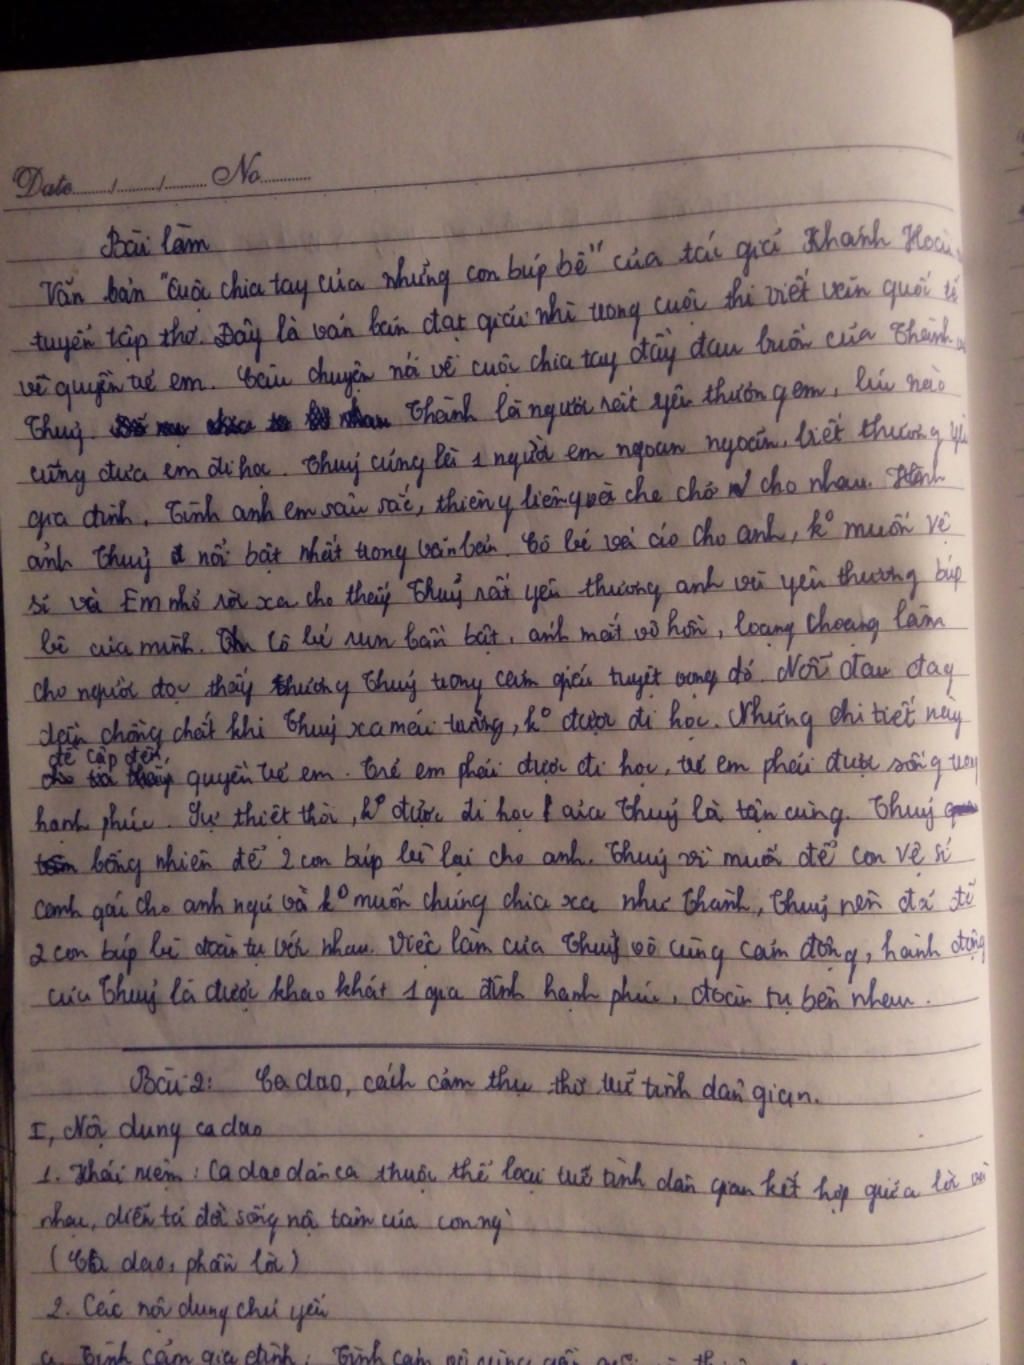 Date ...../...../..... No.........
Bài làm
Văn bản "Cuộc chia tay của những con búp bê" của tác giả Khánh Hoài
tuyển tập thơ. Đây là văn bản đạt giải nhì trong cuộc thi viết văn quốc tế
về quyền trẻ em. Câu chuyện nói về cuộc chia tay đầy đau buồn của Thành
Thuỷ. Thành là người rất yêu thương em, lúc nào
cũng đưa em đi học. Thuỷ cũng là 1 người em ngoan ngoãn, biết thương yêu
gia đình. Tình anh em sâu sắc, thiêng liêng và che chở cho nhau. Hình
ảnh Thuỷ nổi bật nhất trong văn bản. Cô bé vá áo cho anh, ko muốn vệ
sĩ và Em nhỏ rời xa cho thấy Thuỷ rất yêu thương anh và yêu thương búp
bê của mình. Cô bé run bần bật, ánh mắt vô hồn, loạng choạng làm
cho người đọc thấy thương Thuỷ trong cảm giác tuyệt vọng đó. Nỗi đau đay
dến chồng chất khi Thuỷ xa mái trường, ko được đi học. Những chi tiết này
đề cập đến quyền trẻ em. Trẻ em phải được đi học, trẻ em phải được sống trong
hạnh phúc. Sự thiệt thòi, ko được đi học của Thuỷ là tận cùng. Thuỷ
bỗng nhiên để 2 con búp bê lại cho anh. Thuỷ vì muốn để con vệ sĩ
canh gác cho anh ngủ và ko muốn chúng chia xa như Thành, Thuỷ nên đã để
2 con búp bê đoàn tụ với nhau. Việc làm của Thuỷ vô cùng cảm động, hành động
của Thuỷ là được khao khát 1 gia đình hạnh phúc, đoàn tụ bên nhau.
Bài 2: Ca dao, cách cảm thụ thơ trữ tình dân gian.
I, Nội dung ca dao
1. Khái niệm: Ca dao dân ca thuộc thể loại trữ tình dân gian kết hợp giữa lời và
nhạc, diễn tả đời sống nội tâm của con ng'
(Ca dao, phần lời)
2. Các nội dung chủ yếu
a. Tình cảm gia đình: Tình cảm vô cùng